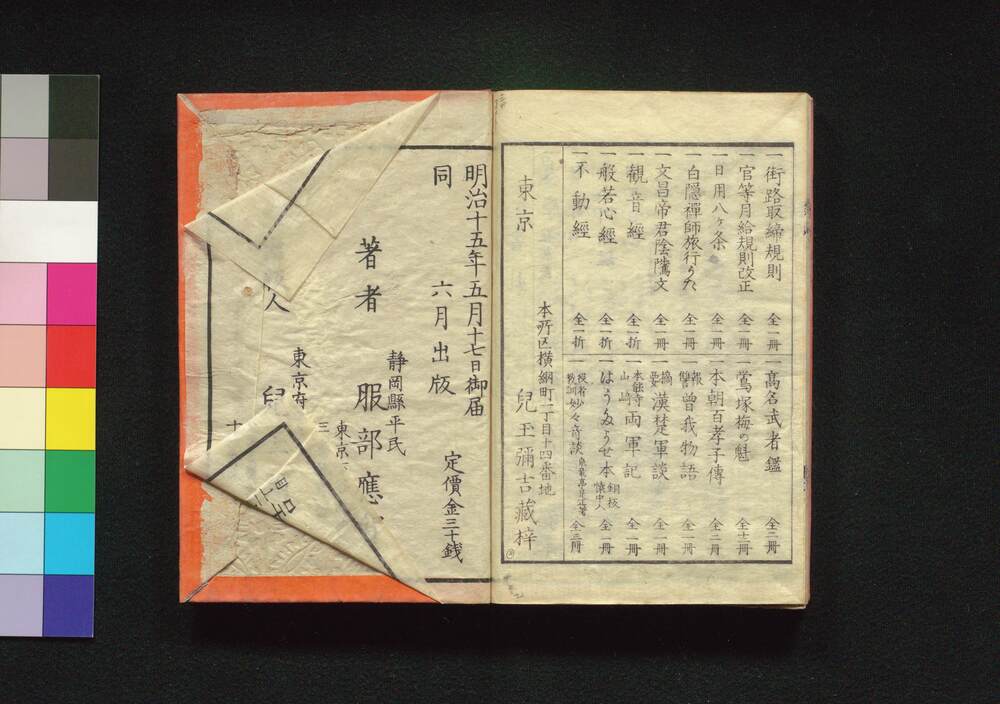 一 街路取締規則 全一冊
一 官等月給規則改正 全一冊
一 日用八ヶ条 全一冊
一 白隠禪師旅行うた 全一冊
一 文昌帝君陰隲文 全一冊
一 観音經 全一折
一 般若心經 全一折
一 不動經 全一折
一 高名武者鑑 全二冊
一 鶯塚梅の魁 全十二冊
一 本朝百孝子傳 全二冊
一 報讐 曽我物語 全一冊
一 摘要 漢楚軍談 全一冊
一 本能寺 山崎 両軍記 全一冊
一 銅板 懐中入 全一冊
一 妙々奇談 全三冊
本所区横網町二丁目十四番地
東京 兒玉彌吉藏梓
明治十五年五月十七日御届
同 六月出版
定價金三十銭
静岡縣平民
著者 服部應
東京
東京府
人 兒